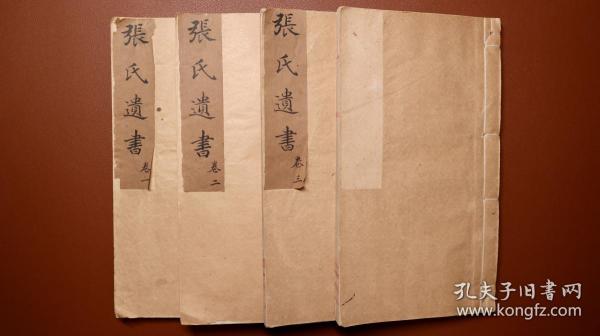 張氏遺書
卷一
張氏遺書
卷二
張氏遺書
卷三
孔夫子旧書网
www.kongfz.com